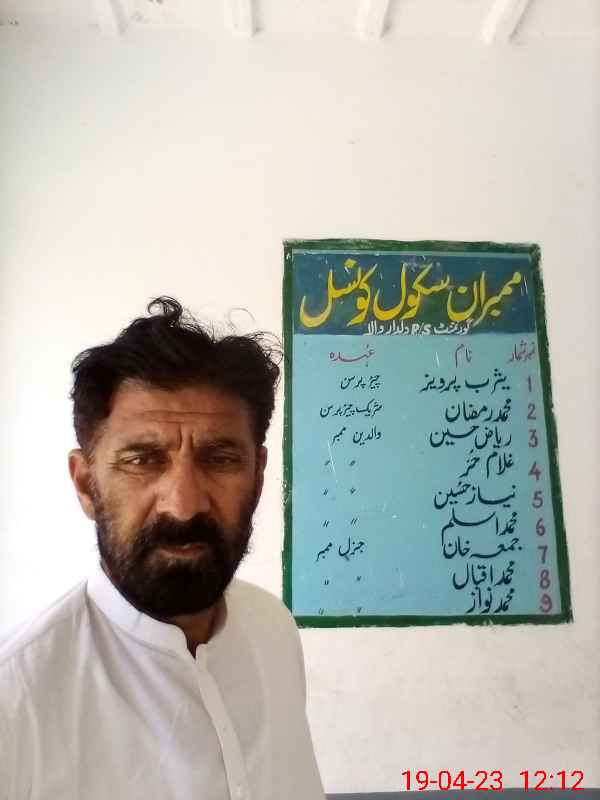 ممبران سکول کونسل
گورنمنٹ P/S دلدار والا
نمبرشمار نام عہدہ
1 یثرب پرویز چیئرپرسن
2 محمد رمضان شریک چیئرپرسن
3 ریاض حسین والدین ممبر
4 غلام حُر " "
5 نیاز حسین " "
6 محمد اسلم " "
7 جمعہ خان جنرل ممبر
8 محمد اقبال " "
9 محمد نواز " "
19-04-23 12:12